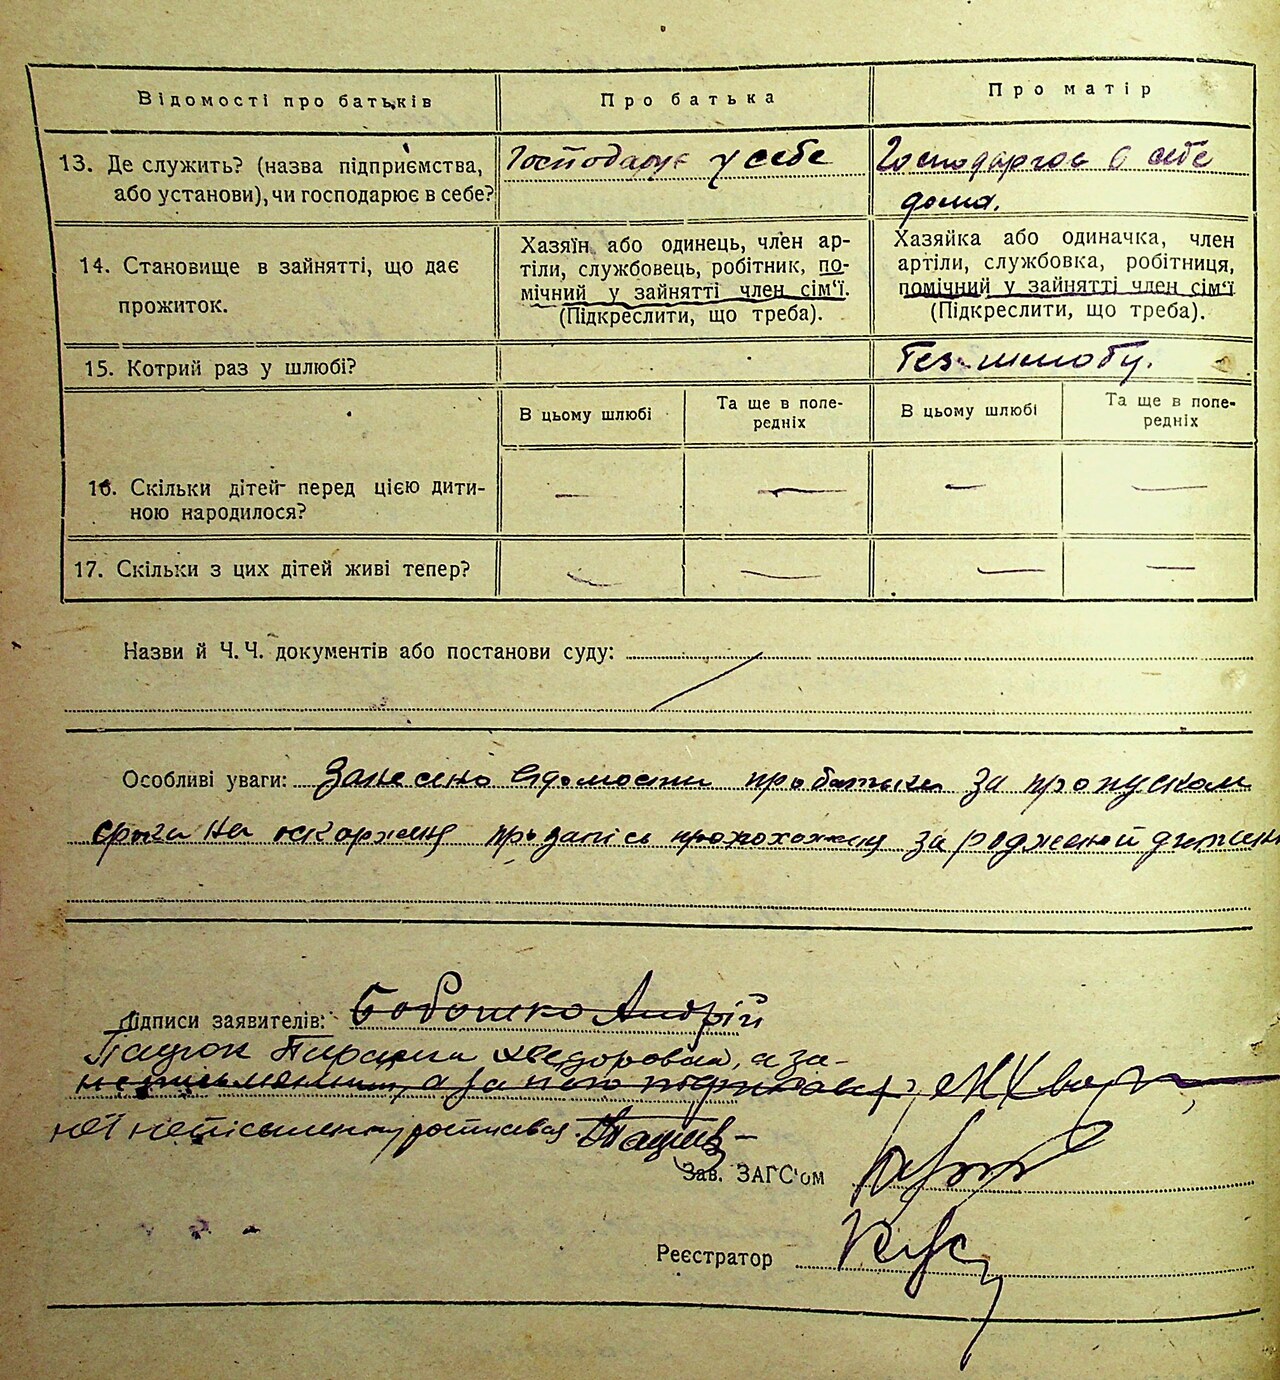 Відомості про батьків
Про батька
Про матір
13. Де служить? (назва підприємства, або установи), чи господарює в себе?
Господарує у себе
Господарює в себе
дома.
14. Становище в зайнятті, що дає прожиток.
Хазяїн або одинець, член ар-
тіли, службовець, робітник, по-
мічний у зайнятті член сім'ї.
(Підкреслити, що треба).
Хазяйка або одиначка, член
артіли, службовка, робітниця,
помічний у зайнятті член сім'ї
(Підкреслити, що треба).
15. Котрий раз у шлюбі?
Без шлюбу.
В цьому шлюбі
Та ще в попе-
редніх
В цьому шлюбі
Та ще в попе-
редніх
16. Скільки дітей перед цією дити-
ною народилося?
17. Скільки з цих дітей живі тепер?
Назви й Ч. Ч. документів або постанови суду:
Особливі уваги: Занесено відомости про батька за пропуском
срока на оскарження про запись
Підписи заявителів: Бобошко Андрій
Параска Хведоровна, а за-
неї неписьменну росписався
Зав. ЗАГС'ом
Реєстратор